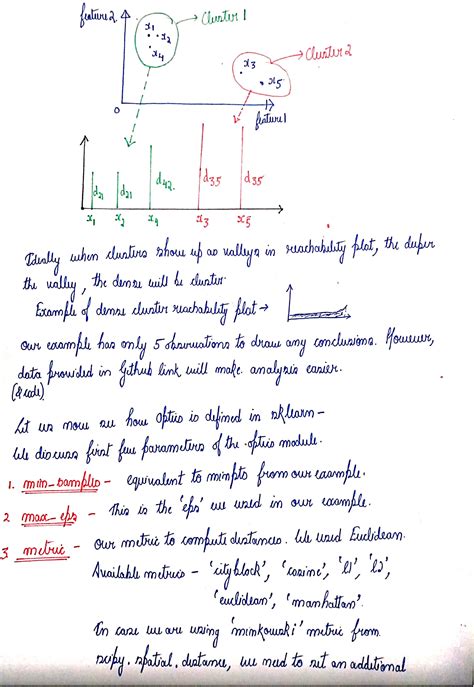 feature2
Cluster 1
x1
x2
x4
Cluster 2
x3
x5
0
feature1
d21
d21
d42
d35
d35
x1
x2
x4
x3
x5
Ideally when clusters show up as valleys in reachability plot, the deeper
the valley, the dense will be cluster.
Example of dense cluster reachability plot →
Our example has only 5 observations to draw any conclusions. However,
data provided in Github link will make analysis easier.
(& code)
Let us now see how Optics is defined in sklearn -
We discuss first few parameters of the optics module.
1. min_samples - equivalent to minpts from our example.
2 max_eps - this is the 'eps' we used in our example.
3 metric - Our metric to compute distances. We used Euclidean.
Available metrics - 'cityblock', 'cosine', 'l1', 'l2',
'euclidean', 'manhattan'.
In case we are using 'minkowski' metric from
scipy.spatial.distance, we need to set an additional